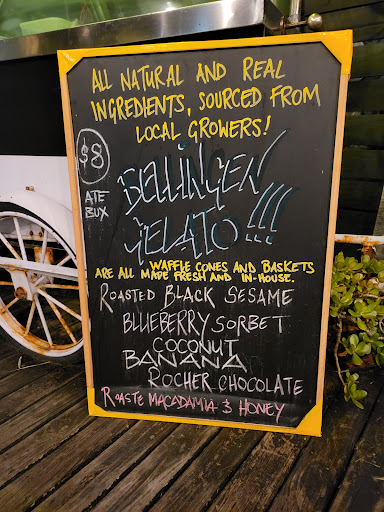 ALL NATURAL AND REAL
INGREDIENTS, SOURCED FROM
LOCAL GROWERS!
$8
ATE
BUX
BELLINGEN
GELATO!!!
WAFFLE CONES AND BASKETS
ARE ALL MADE FRESH AND IN-HOUSE.
ROASTED BLACK SESAME
BLUEBERRY SORBET
COCONUT
BANANA
ROCHER CHOCOLATE
ROASTE MACADAMIA & HONEY